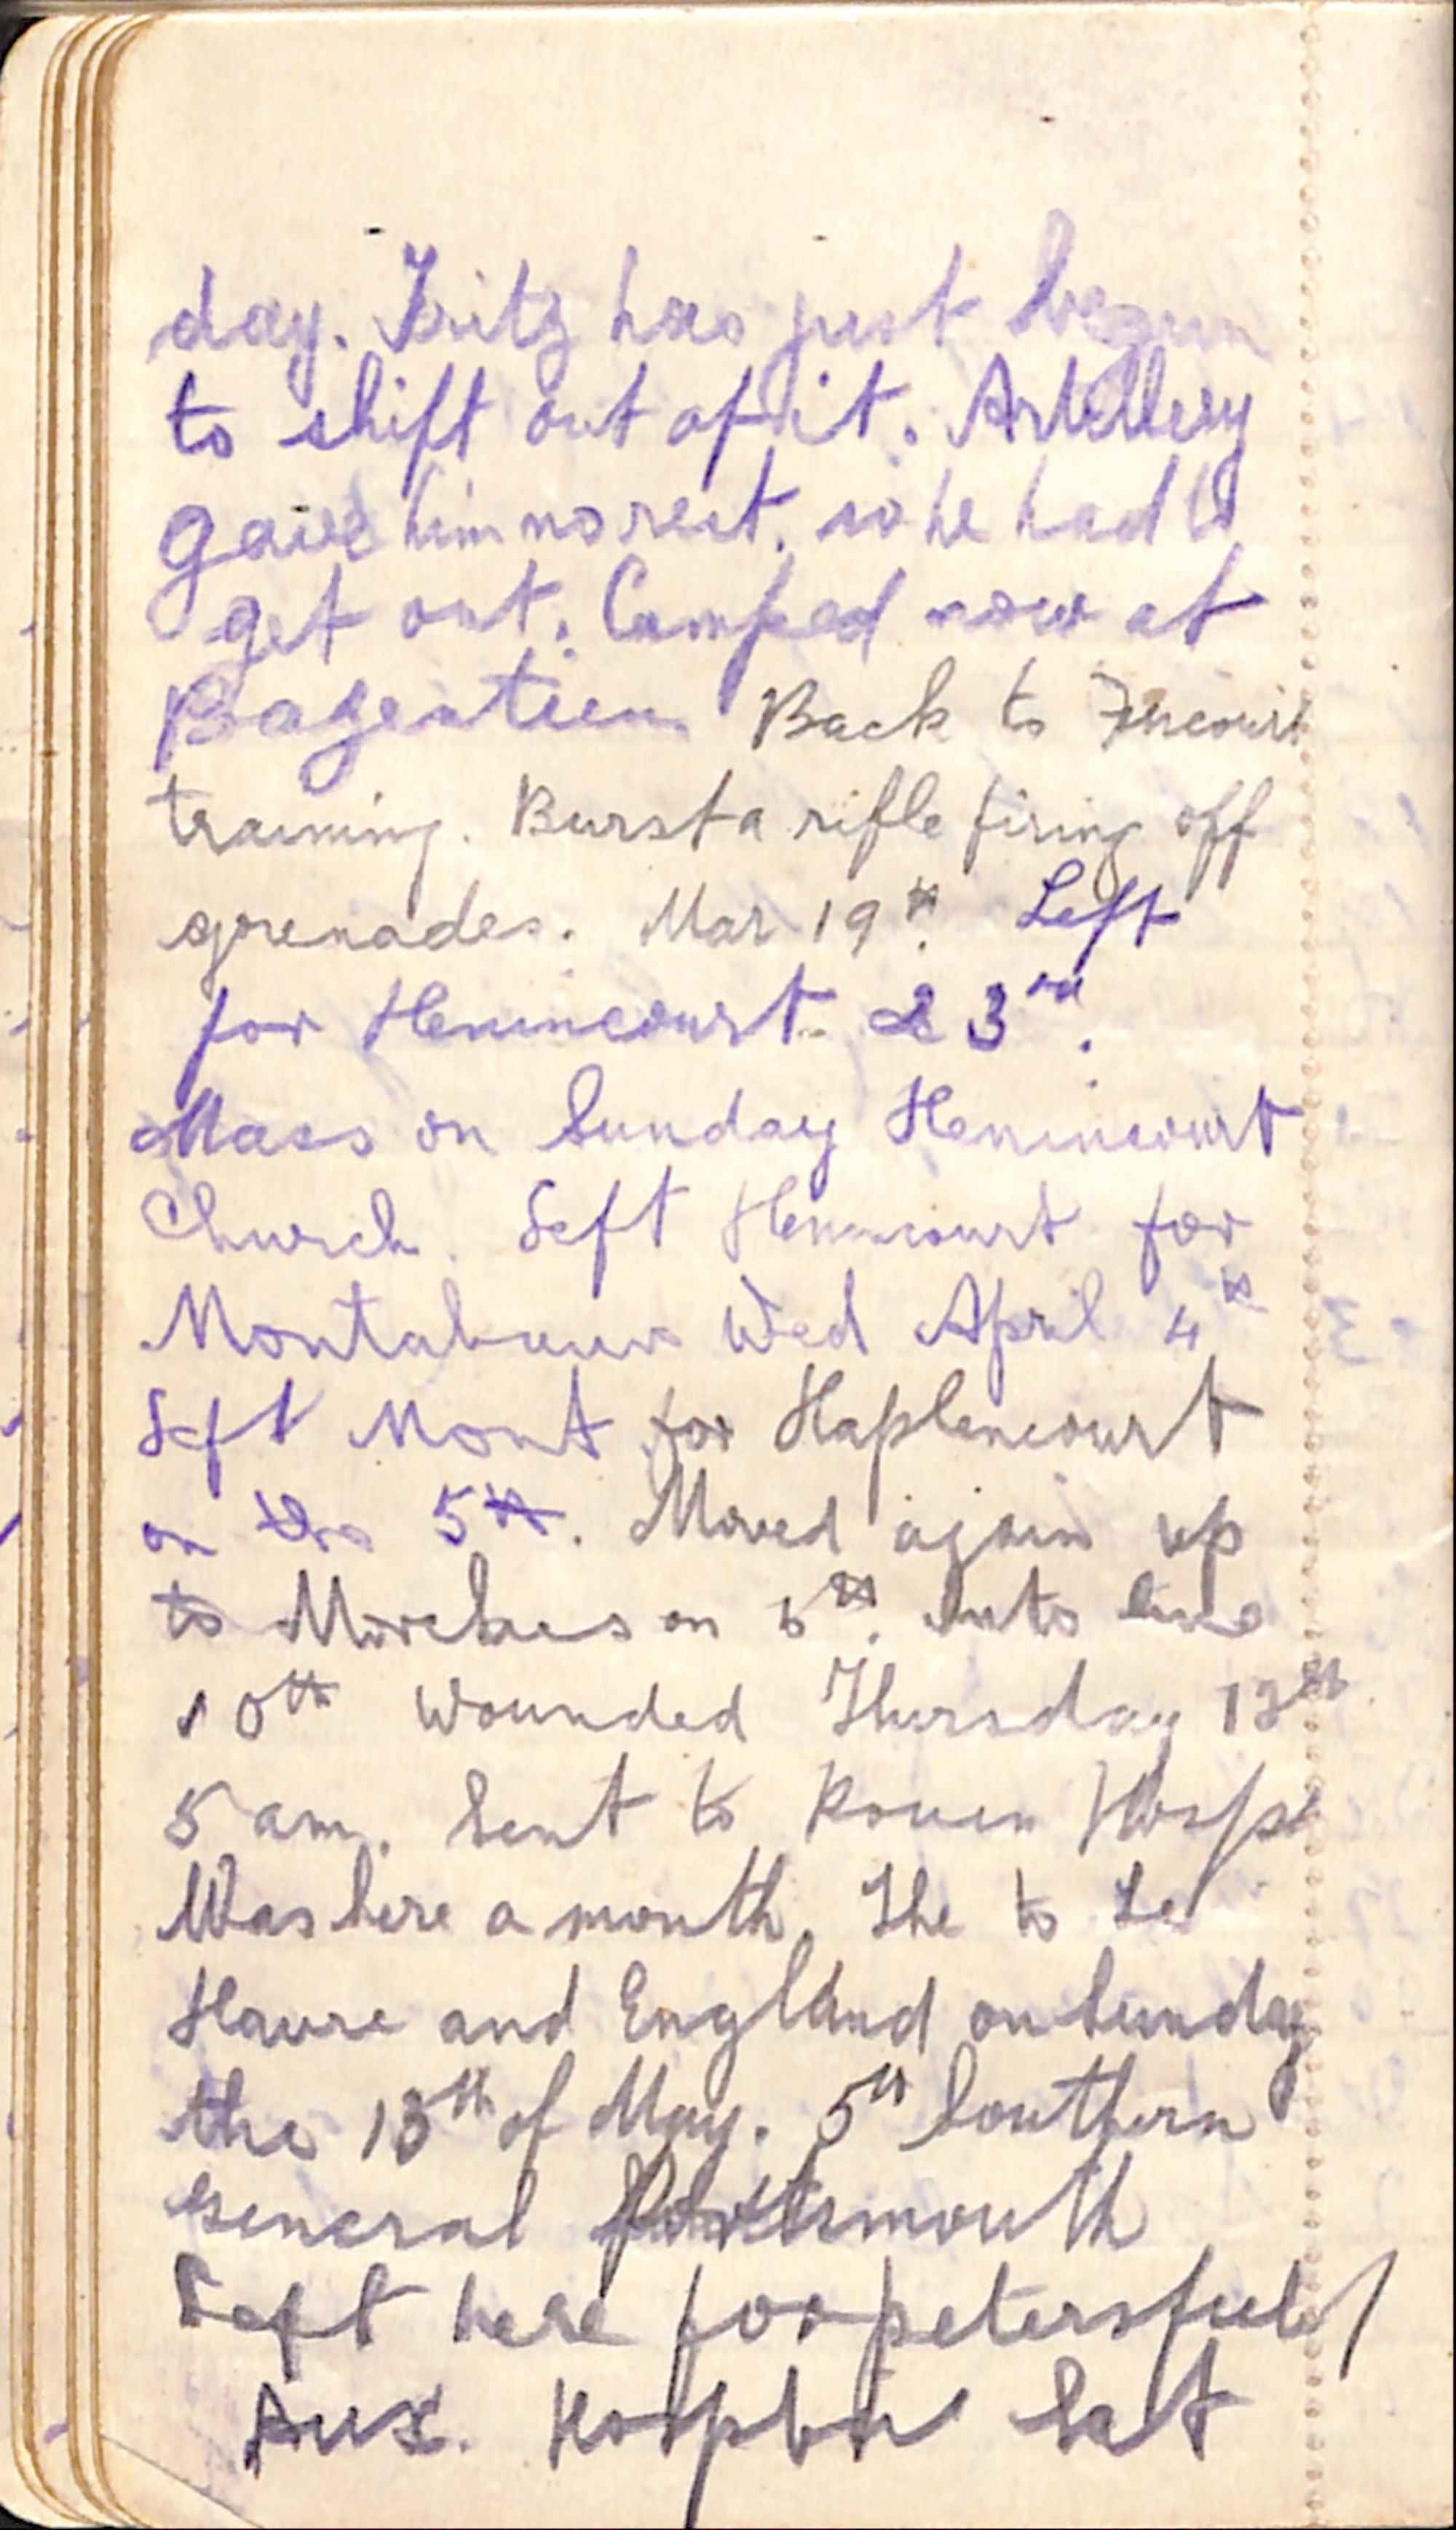 day. Fritz has just begun
to shift out of it. Artillery
gave him no rest. so he had to
get out. Camped now at
Bazentien Back to
training. Burst a rifle firing off
grenades. Mar 19th. Left
for Henincourt 23rd.
Mass on Sunday Henincourt
Church. Left Henincourt for
Wed April 4th
Left Mont for Haplencourt
on the 5th. Moved again up
to Morchies on 6th. into line
10th Wounded Thursday 12th
5 am. Sent to Rouen Hosp
Was here a month. The to Le
Havre and England on Sunday
the 13th of May. 5th Southern
General Portsmouth
Left here for petersfield
Aux. Sat